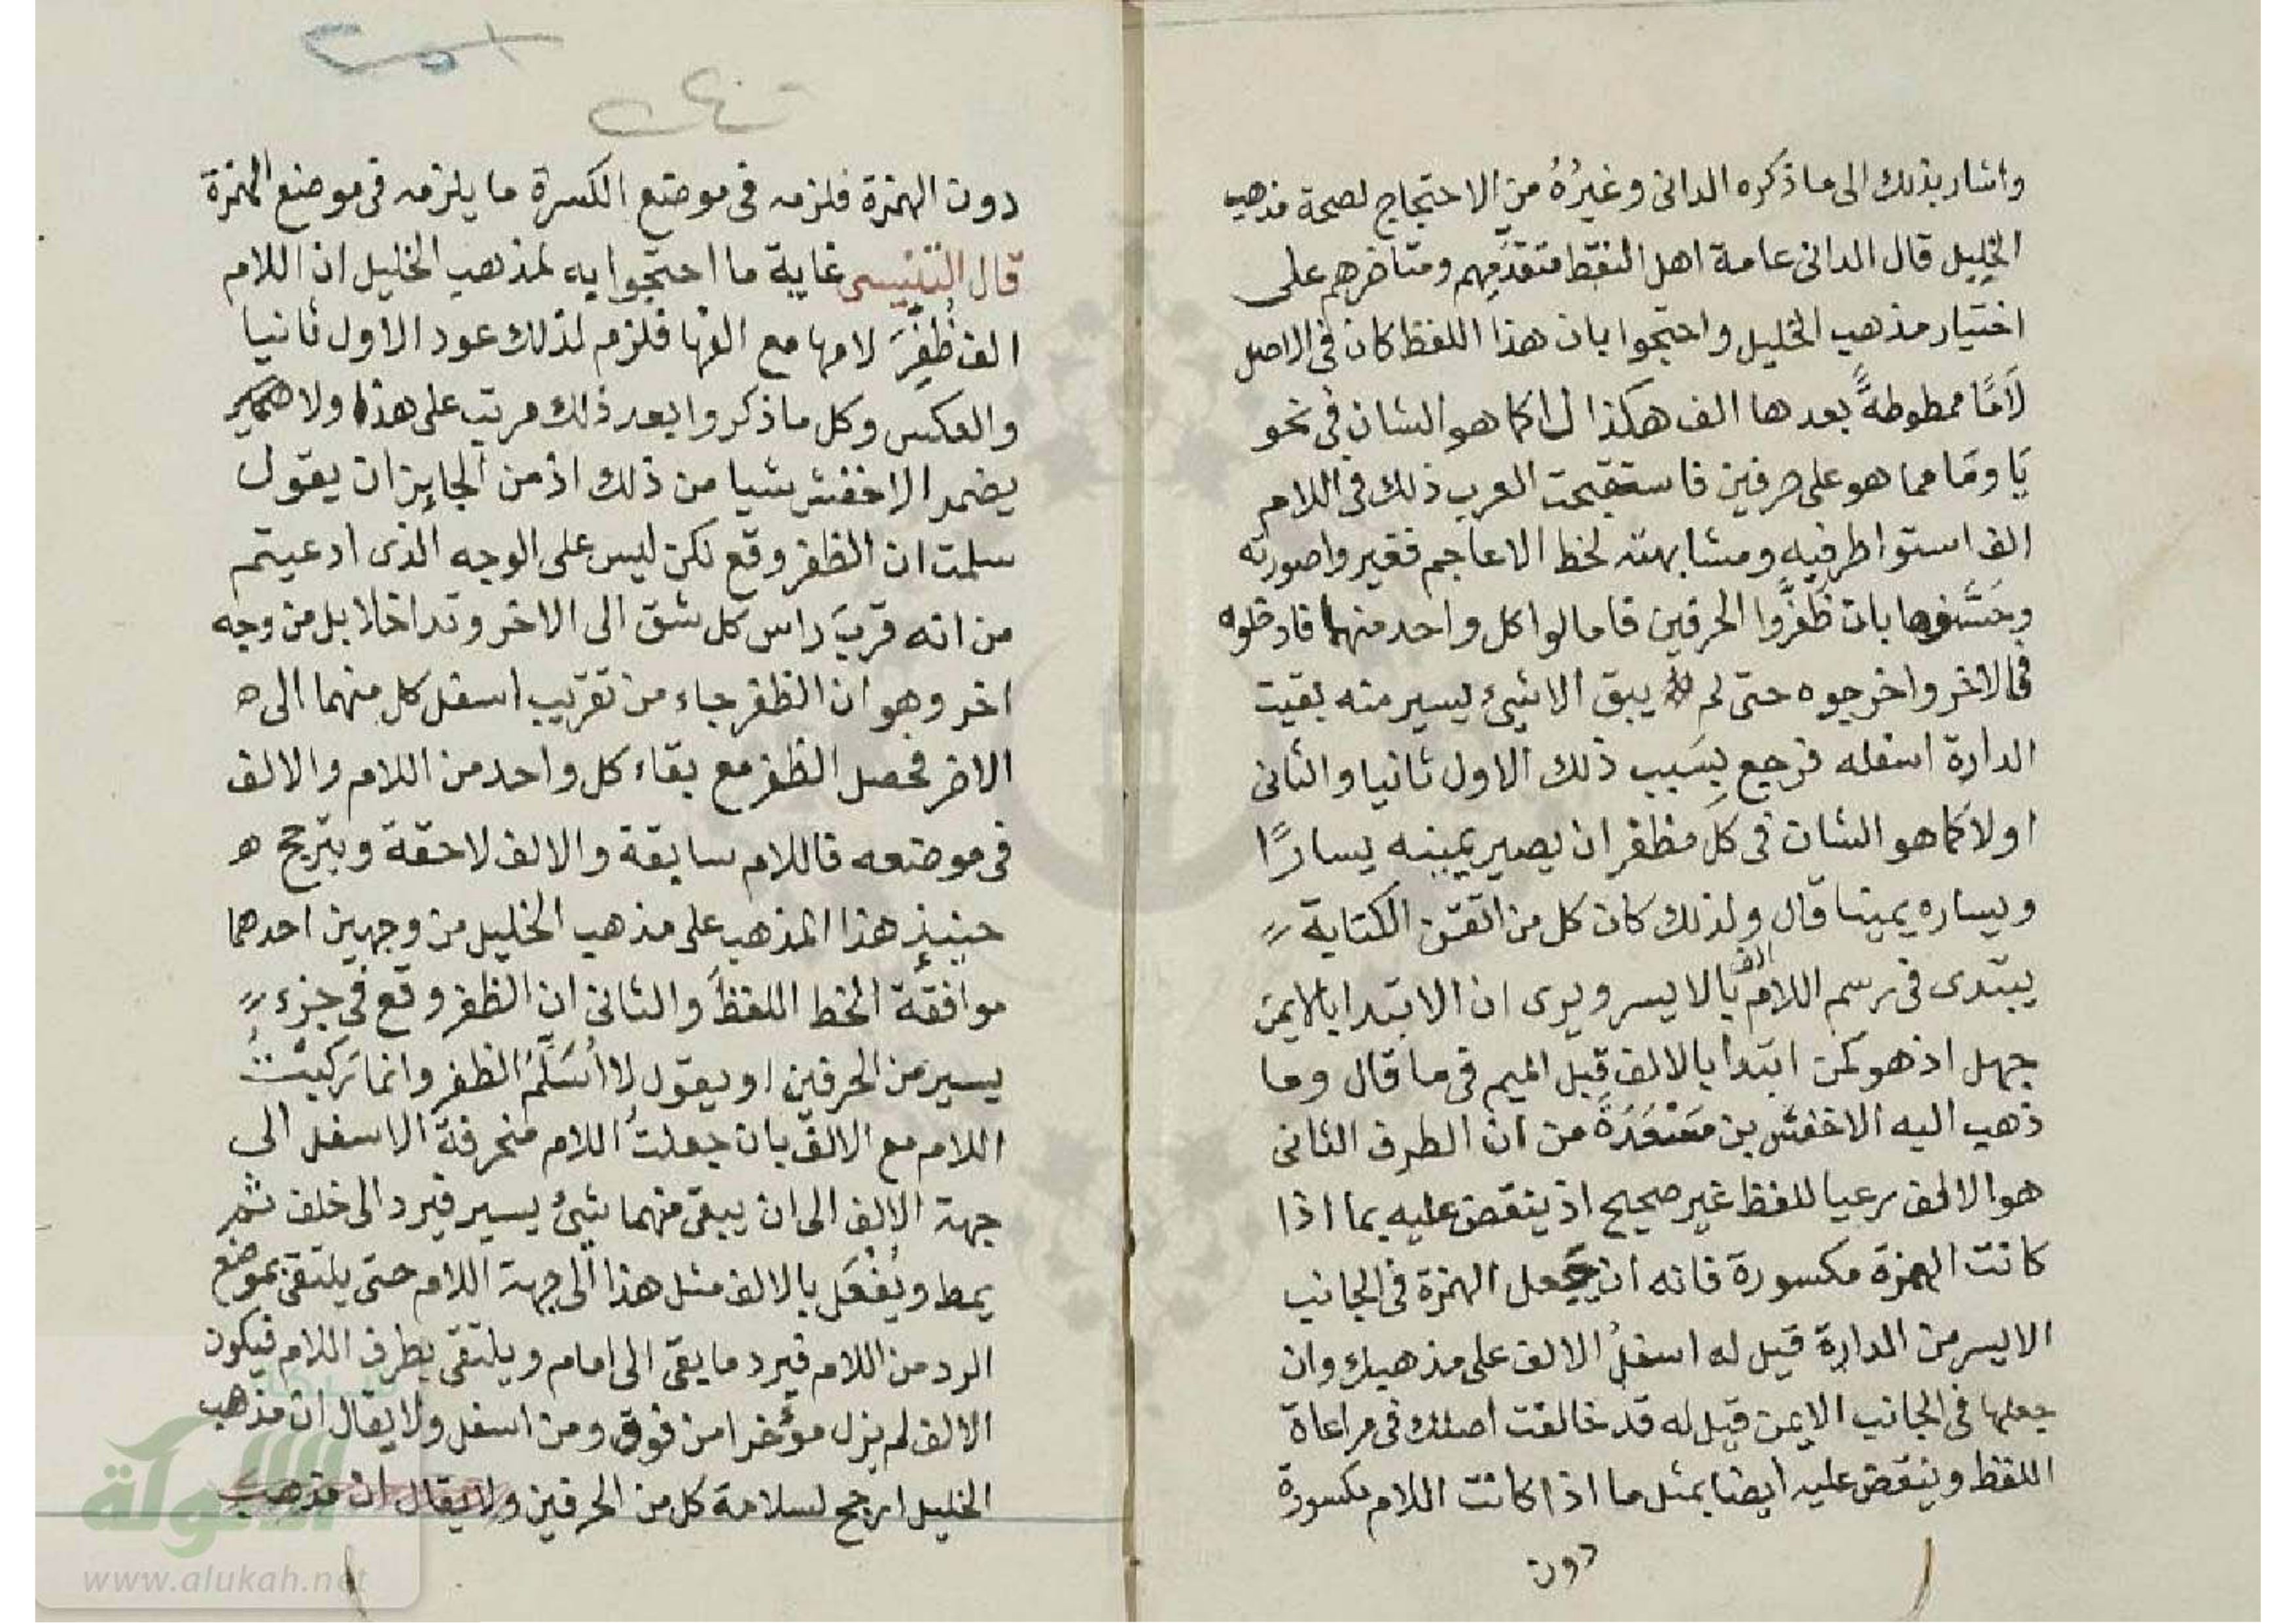 واشار بذلك الى ما ذكره الدانى وغيرُهُ من الاحتجاج لصحة مذهب
الخليل قال الدانى عامة اهل النقط متقدِّمهم ومتاخرهم على
اختيار مذهب الخليل واحتجوا بان هذا اللفظ كان فى الاصل
لَامًا ممطوطةً بعدها الف هكذا لـا كما هو الشان فى نحو
يَا ومَا مما هو على حرفين فاستقبحت العرب ذلك فى اللام
الف استوا طرفيه ومشابهته لخط الاعاجم فغيروا صورته
وحَسَّنوها بان ظَفَّروا الحرفين فامالوا كل واحد منهما فادخلوه
فى الاخر واخرجوه حتى لم يبق الا شيئ يسير منه بقيت
الدارة اسفله فرجع بِسَبب ذلك الاول ثانيا والثانى
اولا كما هو الشان فى كل مظفر ان يصير يمينه يسارًا
ويساره يمينا قال ولذلك كان كل من اتقن الكتابة
يبتدى فى رسم اللام الف بالايسر ويرى ان الابتدا بالايمن
جهل اذ هو كمن ابتدا بالالف قبل الميم فى ما قال وما
ذهب اليه الاخفش بن مَسْعَدَةَ من ان الطرف الثانى
هو الالف رعيا للفظ غير صحيح اذ ينتقض عليه بما اذا
كانت الهمزة مكسورة فانه ان جعل الهمزة فى الجانب
الايسر من الدارة قيل له اسفلُ الالف على مذهبك وان
جعلها فى الجانب الايمن قيل له قد خالفت اصلك فى مراعاة
اللفظ وينتقض عليه ايضا بمثل ما اذا كانت اللام مكسورة
دون
دون الهمزة فلزمه فى موضع الكسرة ما يلزمه فى موضع الهمزة
قال التنسى غاية ما احتجوا به لمذهب الخليل ان اللام
الف ظُفِّرَ لامها مع الفها فلزم لذلك عود الاول ثانيا
والعكس وكل ما ذكروا بعد ذلك مرتب على هذا ولا
يضمر الاخفش شيا من ذلك اذ من الجايز ان يقول
سلمت ان الظفر وقع لكن ليس على الوجه الذى ادعيتم
من انه قربَ راس كل شق الى الاخر وتداخلا بل من وجه
اخر وهو ان الظفر جاء من تقريب اسفل كل منهما الى ه
الاخر فحصل الظفر مع بقاء كل واحد من اللام والالف
فى موضعه فاللام سابقة والالف لاحقة ويترجح ه
حينيذٍ هذا المذهب على مذهب الخليل من وجهين احدهما
موافقة الخط اللفظَ والثانى ان الظفر وقع فى جزء
يسير من الحرفين او يقول لا اُسَلِّمُ الظفر وانما تَركبتْ
اللام مع الالف بان جعلتُ اللام منحرفة الاسفل الى
جهة الالف الى ان يبقى منهما شيئ يسير فيرد الى خلف ثم
يمط ويُفْعَل بالالف مثل هذا الى جهة اللام حتى يلتقى بموضع
الرد من اللام فيرد ما بقى الى امام ويلتقى بطرف اللام فيكون
الالف لم يزل مؤخرا من فوق ومن اسفل ولا يقال ان مذهب
الخليل ارجح لسلامة كل من الحرفين ولا يقال ان مذهب
شبكة
الألوكة
www.alukah.net